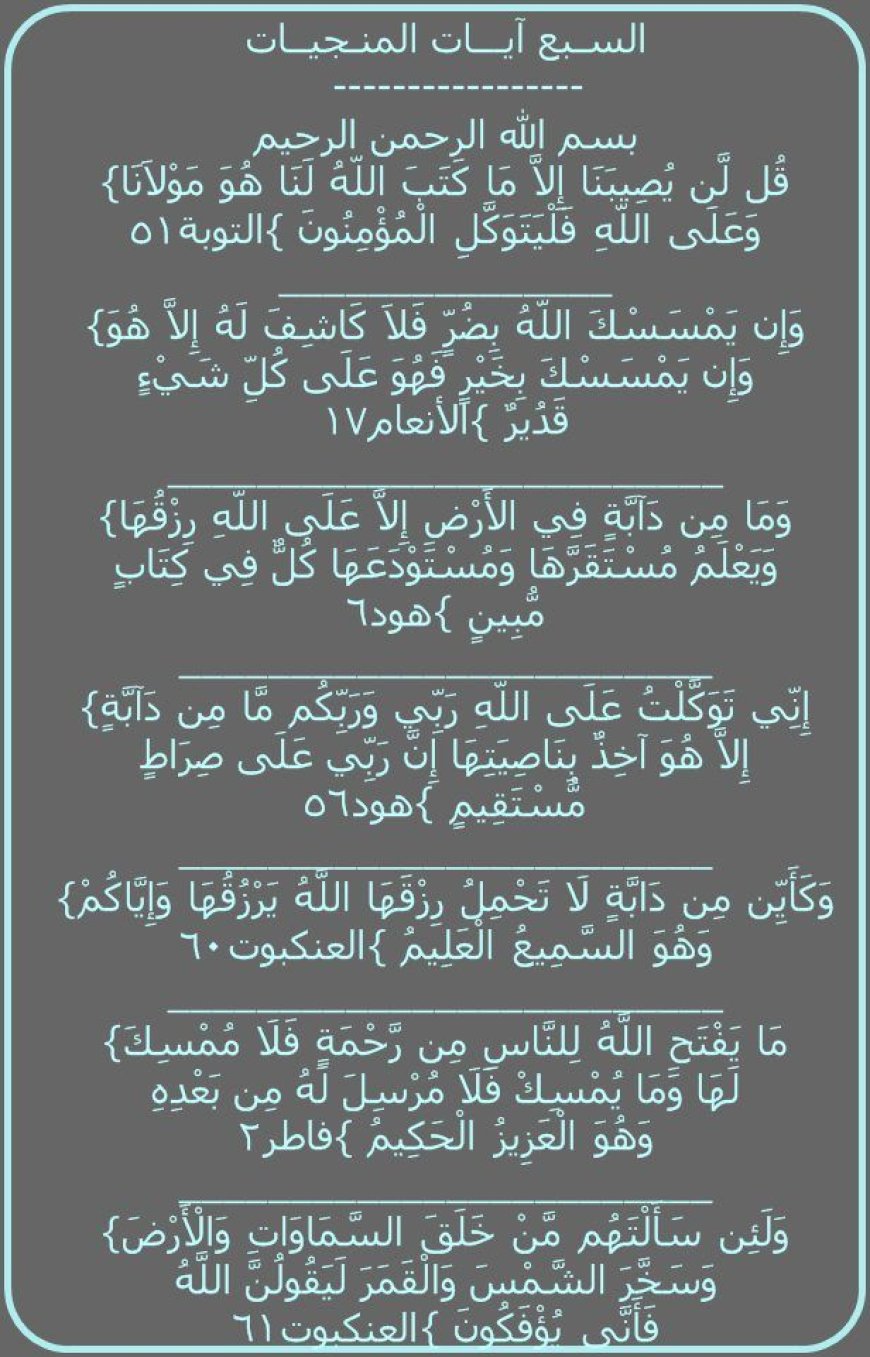 الســبع آيـــات المنـجيــات
-----------------
بسم الله الرحمن الرحيم
قُل لَّن يُصِيبَنَا إِلاَّ مَا كَتَبَ اللّهُ لَنَا هُوَ مَوْلاَنَا}
وَعَلَى اللّهِ فَلْيَتَوَكَّلِ الْمُؤْمِنُونَ }التوبة٥١
وَإِن يَمْسَسْكَ اللّهُ بِضُرٍّ فَلاَ كَاشِفَ لَهُ إِلاَّ هُوَ}
وَإِن يَمْسَسْكَ بِخَيْرٍ فَهُوَ عَلَى كُلِّ شَيْءٍ
قَدُيرٌ }الأنعام١٧
وَمَا مِن دَآبَّةٍ فِي الأَرْضِ إِلاَّ عَلَى اللّهِ رِزْقُهَا}
وَيَعْلَمُ مُسْتَقَرَّهَا وَمُسْتَوْدَعَهَا كُلٌّ فِي كِتَابٍ
مُّبِينٍ }هود٦
إِنِّي تَوَكَّلْتُ عَلَى اللّهِ رَبِّي وَرَبِّكُم مَّا مِن دَآبَّةٍ}
إِلاَّ هُوَ آخِذٌ بِنَاصِيَتِهَا إِنَّ رَبِّي عَلَى صِرَاطٍ
مُّسْتَقِيمٍ }هود٥٦
وَكَأَيِّن مِن دَابَّةٍ لَا تَحْمِلُ رِزْقَهَا اللَّهُ يَرْزُقُهَا وَإِيَّاكُمْ}
وَهُوَ السَّمِيعُ الْعَلِيمُ }العنكبوت٦٠
مَا يَفْتَحِ اللَّهُ لِلنَّاسِ مِن رَّحْمَةٍ فَلَا مُمْسِكَ}
لَهَا وَمَا يُمْسِكْ فَلَا مُرْسِلَ لَهُ مِن بَعْدِهِ
وَهُوَ الْعَزِيزُ الْحَكِيمُ }فاطر٢
وَلَئِن سَأَلْتَهُم مَّنْ خَلَقَ السَّمَاوَاتِ وَالْأَرْضَ}
وَسَخَّرَ الشَّمْسَ وَالْقَمَرَ لَيَقُولُنَّ اللَّهُ
فَأَنَّى يُؤْفَكُونَ }العنكبوت٦١